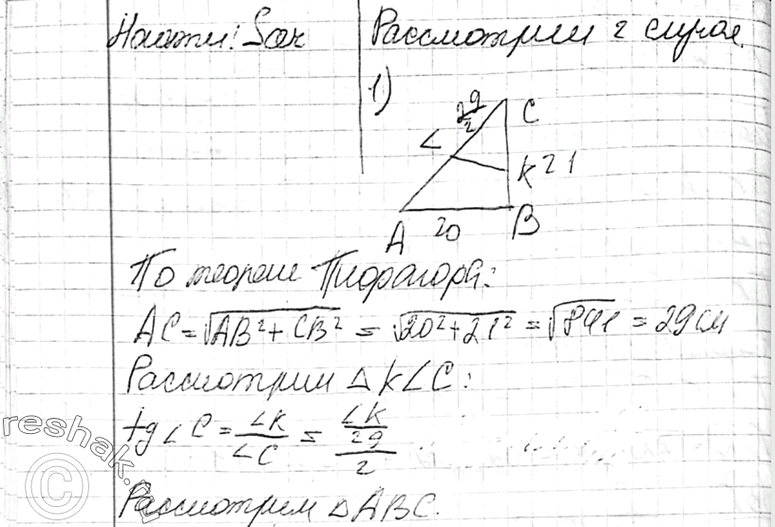 Найти: Sак
Рассмотрим 2 случая.
1)
29/2
C
L
K 21
A 20 B
По теореме Пифагора:
AC = √AB² + CB² = √20² + 21² = √841 = 29 см
Рассмотрим △KLC:
tg∠C = LK/LC = LK/(29/2)
Рассмотрим △ABC.
© reshak.ru